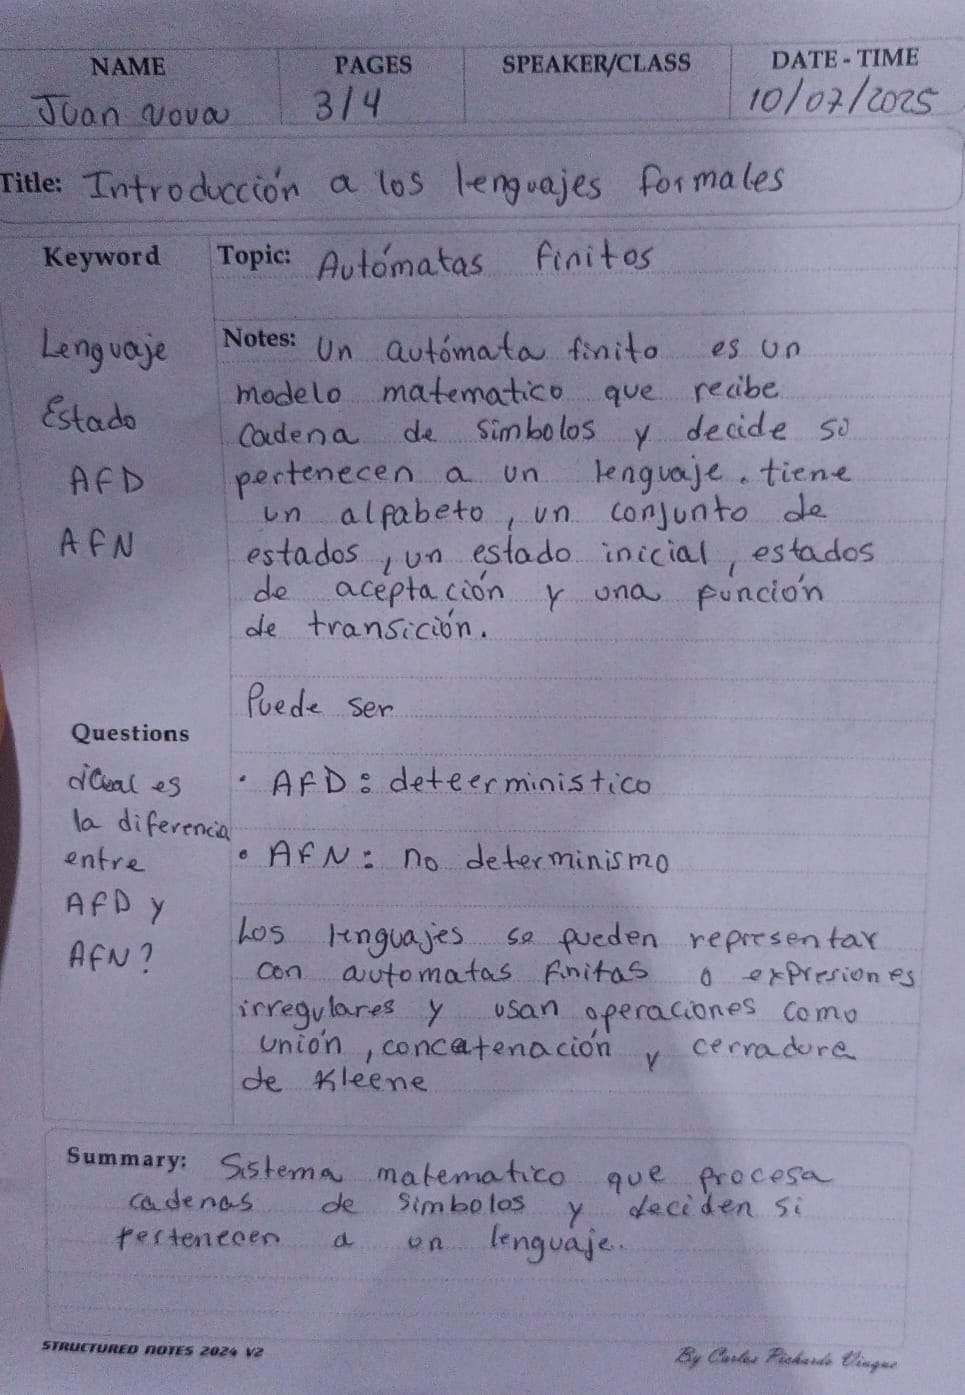 NAME PAGES SPEAKER/CLASS DATE - TIME
Juan nova 3/4 10/07/2025
Title: Introducción a los lenguajes formales
Keyword
Lenguaje
Estado
AFD
AFN
Topic: Autómatas finitos
Notes: Un autómata finito es un
modelo matematico que recibe
cadena de símbolos y decide si
pertenecen a un lenguaje. tiene
un alfabeto, un conjunto de
estados, un estado inicial, estados
de aceptación y una función
de transición.
Puede ser
• AFD: deteerministico
• AFN: no determinismo
Los lenguajes se pueden representar
con automatas finitas o expresiones
irregulares y usan operaciones como
unión, concatenación y cerradura
de Kleene
Questions
¿Cual es
la diferencia
entre
AFD y
AFN?
Summary: Sistema matematico que procesa
cadenas de simbolos y deciden si
pertenecen a un lenguaje.
STRUCTURED NOTES 2024 V2
By Carlos Pichardo Vinque